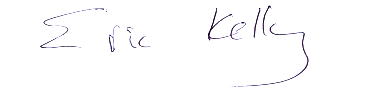 Eric Kelly